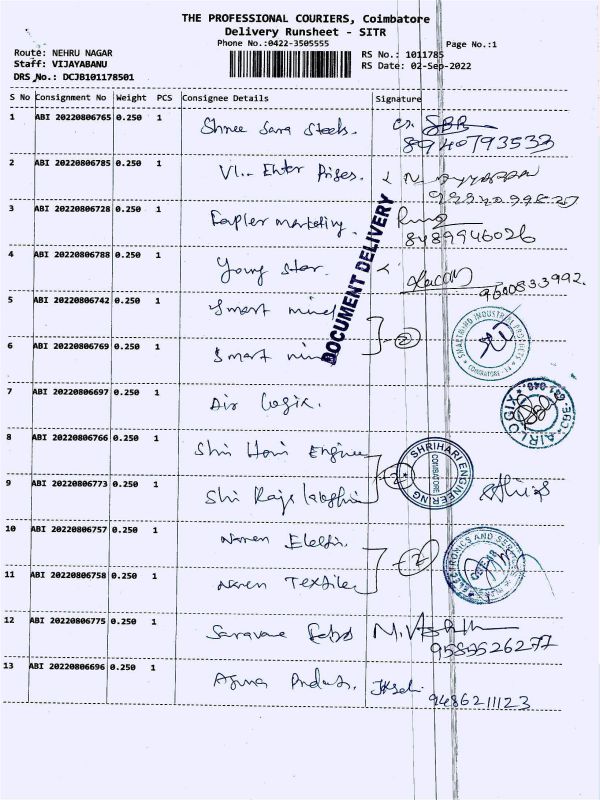 THE PROFESSIONAL COURIERS, Coimbatore
Delivery Runsheet - SITR
Phone No.:0422-3505555
Page No.:1
Route: NEHRU NAGAR
RS No.: 1011785
Staff: VIJAYABANU
RS Date: 02-Sep-2022
DRS No.: DCJB101178501
S No Consignment No Weight PCS Consignee Details Signature
1 ABI 20220806765 0.250 1 Shree Sara Steels. SBR
8940793533
2 ABI 20220806785 0.250 1 VL.. Enter Prises.
3 ABI 20220806728 0.250 1 Kapler marketing.
8489946026
4 ABI 20220806788 0.250 1 Young Star.
9600833992.
DOCUMENT DELIVERY
5 ABI 20220806742 0.250 1 Smart mind
2
6 ABI 20220806769 0.250 1 Smart mind
INDUSTRIAL PRODUCTS
COIMBATORE
7 ABI 20220806697 0.250 1 Air Logix.
AIRLOGIX
CBE-641 048.
8 ABI 20220806766 0.250 1 Shri Hari Engineer
2
SHRIHARI ENGINEERING
COIMBATORE
9 ABI 20220806773 0.250 1 Shri Raja
10 ABI 20220806757 0.250 1 Naren
2
ELECTRONICS AND
11 ABI 20220806758 0.250 1 Naren Textiles
12 ABI 20220806775 0.250 1 Saravana
9585526277
13 ABI 20220806696 0.250 1 Products.
9486211123